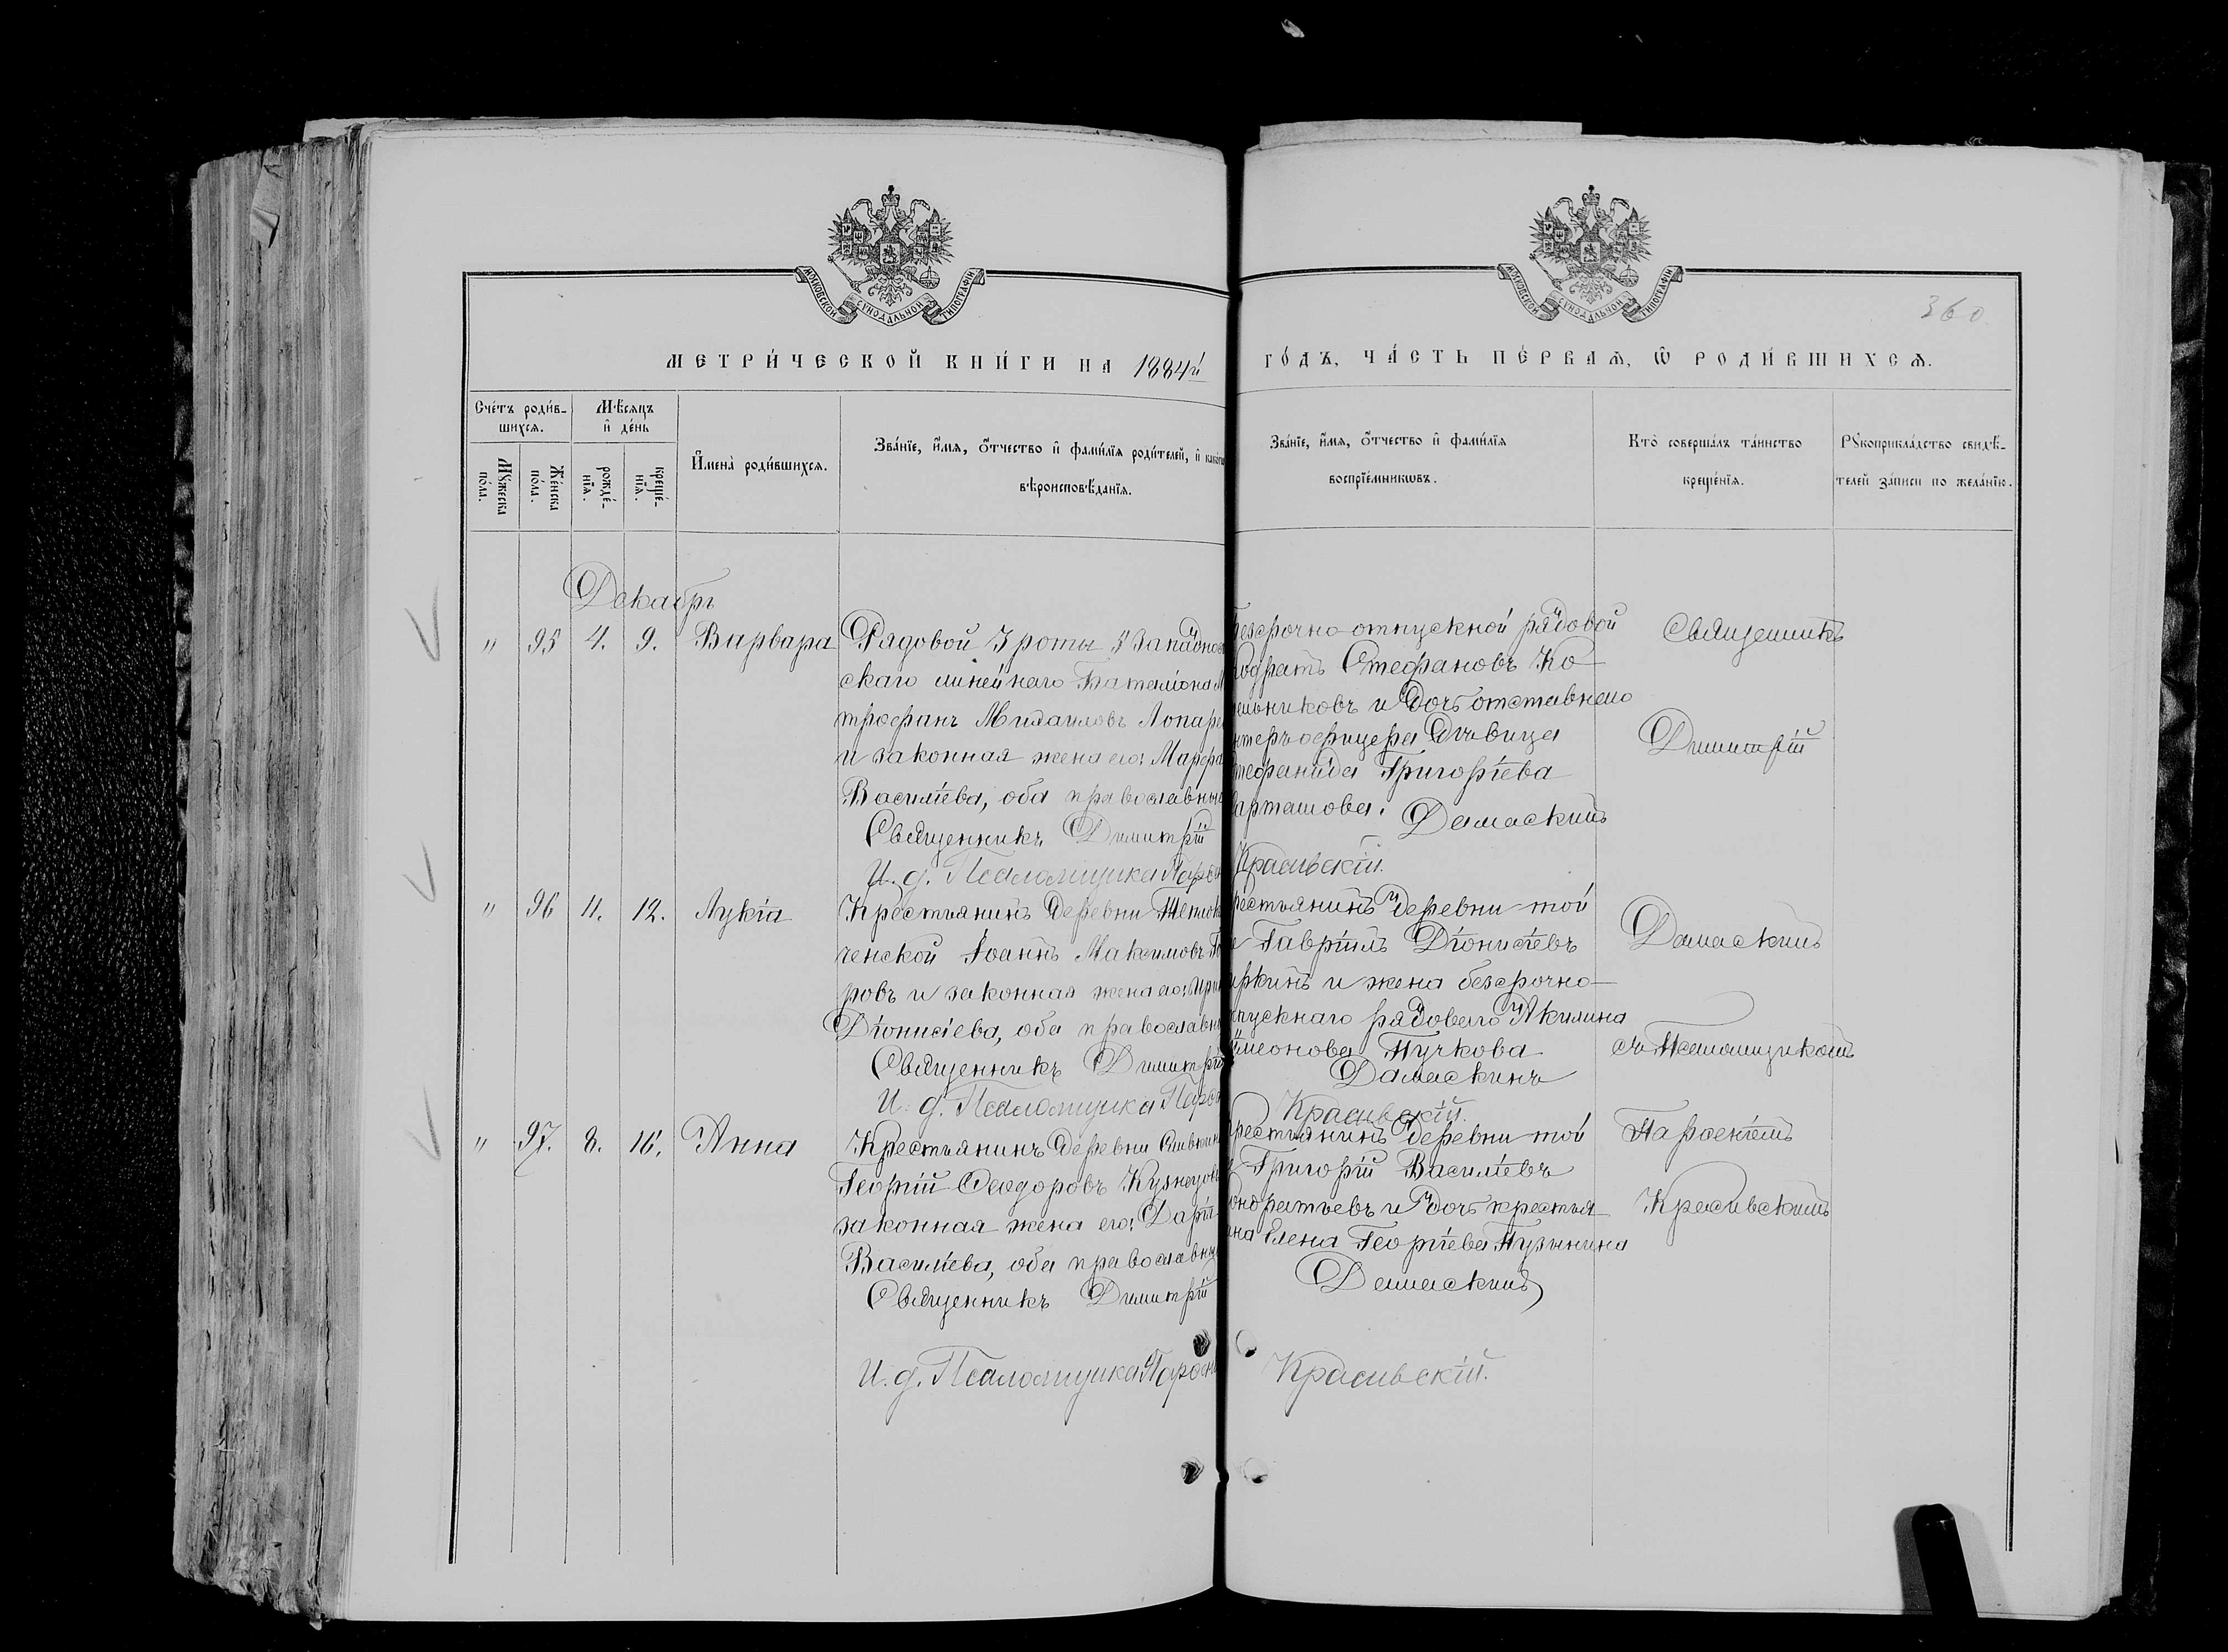 МОСКОВСКОЙ СѴНОДАЛЬНОЙ ТИПОГРАФІИ
МОСКОВСКОЙ СѴНОДАЛЬНОЙ ТИПОГРАФІИ
360
МЕТРИ́ЧЕСКОЙ КНИ́ГИ НА 1884й ГО́ДЪ, ЧА́СТЬ ПЕ́РВАѦ, Ѡ҆ РОДИ́ВШИХСѦ.
Сче́тъ роди́в-
шихсѧ.
Мꙋ́жеска
по́ла.
Же́нска
по́ла.
Мѣ́сяцъ
и҆ де́нь
рожде́-
нїѧ.
креще́-
нїѧ.
И҆мена̀ роди́вшихсѧ.
Зва́нїе, и҆́мѧ, ѻ҆́тчество и҆ фами́лїѧ роди́телей, и҆ како́гѡ
вѣроисповѣ́данїѧ.
Зва́нїе, и҆́мѧ, ѻ҆́тчество и҆ фами́лїѧ
воспрїе́мникѡвъ.
Кто̀ соверша́лъ та́инство
креще́нїѧ.
Рꙋкоприкла́дство свидѣ́-
телей за́писи по жела́нїю.
Декабрь
" 95 4. 9. Варвара
Рядовой 3 роты 3 Западно
скаго линейнаго Баталіона М
трофанъ Михаиловъ Лопаре
и законная жена его: Марфа
Василіева, оба православные
Священникъ Димитрій
И. д. Псаломщика Парѳен
Безсрочно-отпускной рядовой
одратъ Стефановъ Ко-
ельниковъ и дочь отставнаго
нтеръ офицера Дѣвица
тефанида Григоріева
арташова.
Дамаскинъ
Красивскій.
Священникъ
Димитрій
" 96 11. 12. Лукія
Крестьянинъ деревни
ченской Іоаннъ Максимовъ
ровъ и законная жена его: Ири
Діонисіева, оба православны
Священникъ Димитрій
И. д. Псаломщика Парѳен
рестьянинъ деревни той
е Гавріилъ Діонисіевъ
иркинъ и жена безсрочно-
тпускнаго рядоваго Акилина
имеонова Пучкова
Дамаскинъ
Красивскій.
Дамаскинъ
съ Псаломщикомъ
" 97. 8. 16. Анна
Крестьянинъ деревни
Георгій Ѳеодоровъ Кузнецовъ
законная жена его: Дарія
Василіева, оба православны
Священникъ Димитрій
И. д. Псаломщика Парѳен
рестьянинъ деревни той
Григорій Василіевъ
ондратьевъ и дочь крестья-
ина Елена Георгіева
Дамаскинъ
Красивскій.
Парѳеніемъ
Красивскимъ